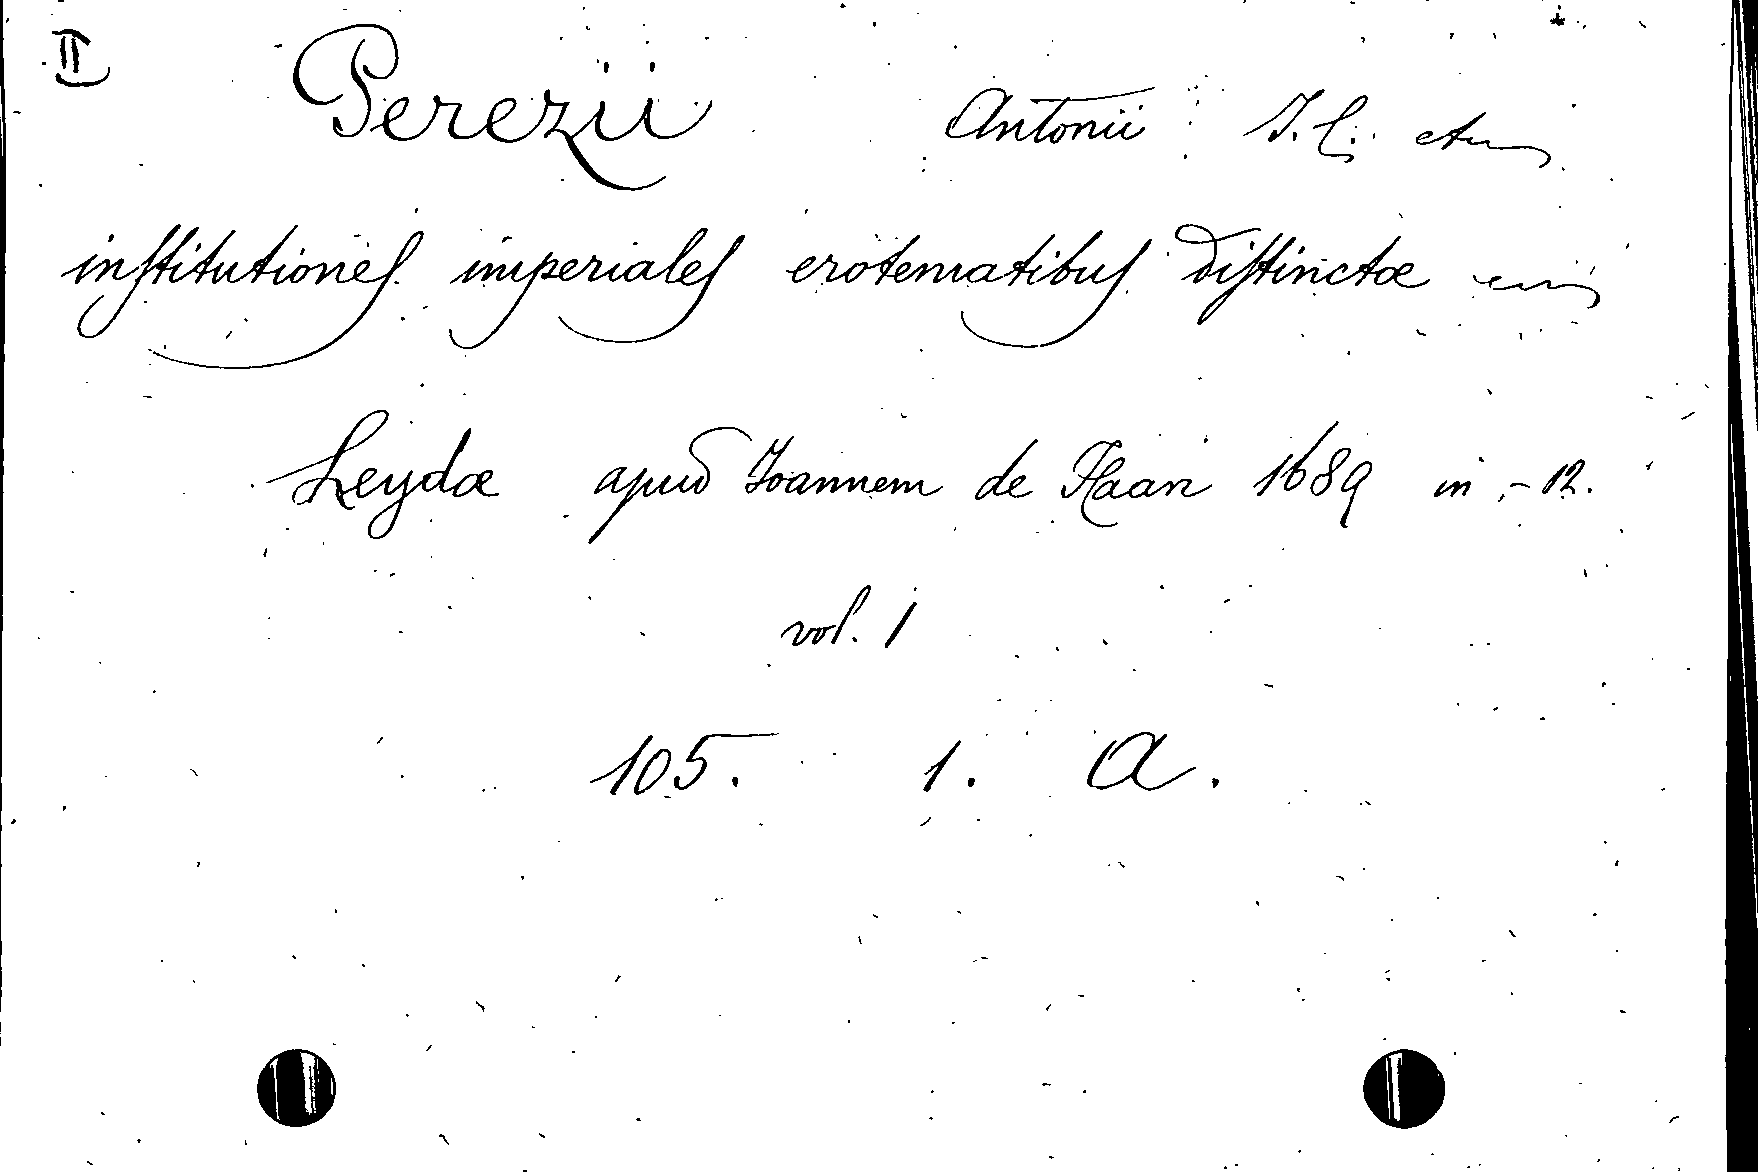 II Perezii Antonii J. C.
institutiones imperiales erotematibus distinctæ
Leydæ apud Joannem de Haan 1689 in-12.
vol. 1
105. 1. A.